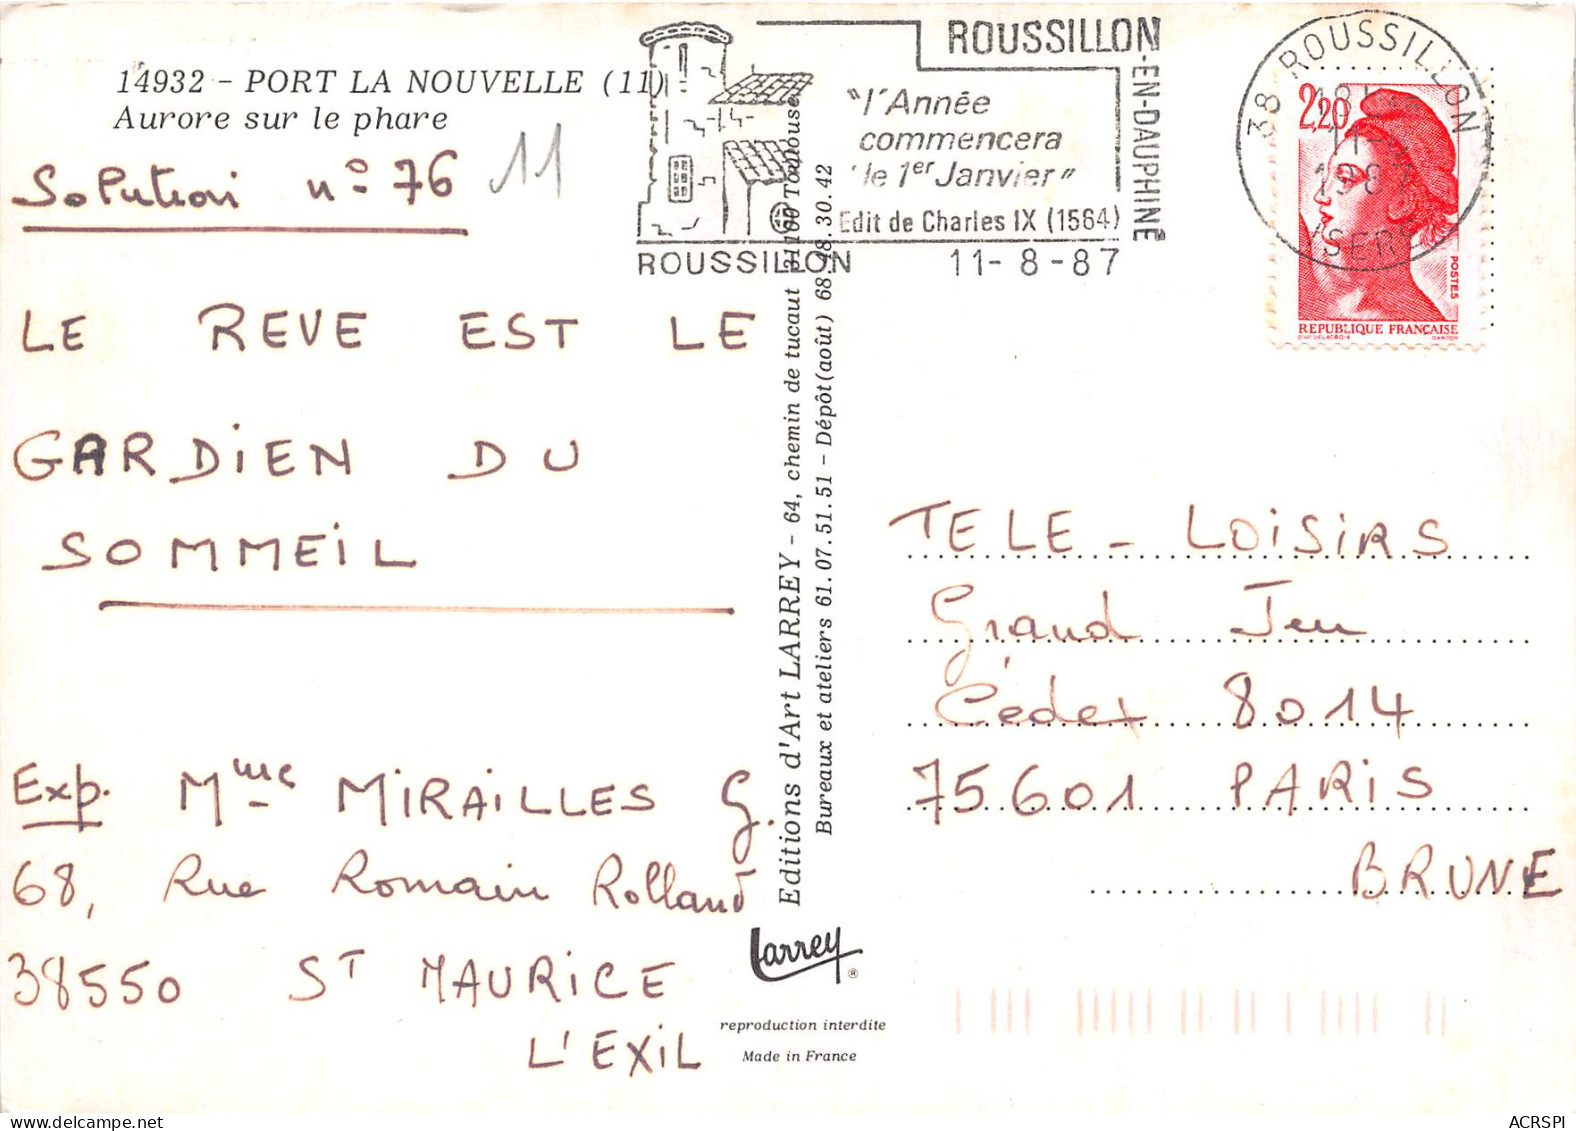 14932 - PORT LA NOUVELLE (11)
Aurore sur le phare
11
Solution n° 76
LE REVE EST LE
GARDIEN DU
SOMMEIL
Exp. Mme MIRAILLES G.
68, Rue Romain Rolland
38550 ST MAURICE
L'EXIL
ROUSSILLON
-EN-DAUPHINÉ
"l'Année
commencera
le 1er Janvier"
Edit de Charles IX (1564)
ROUSSILLON 11-8-87
38 ROUSSILLON
1987
ISERE
2,20
POSTES
REPUBLIQUE FRANÇAISE
D'AP. DELACROIX GANDON
Editions d'Art LARREY - 64, chemin de tucaut 31100 Toulouse
Bureaux et ateliers 61.07.51.51 - Dépôt (août) 68.48.30.42
Larrey ®
reproduction interdite
Made in France
TELE - LOISIRS
Grand Jeu
Cédex 8014
75601 PARIS
BRUNE
ACRSPI